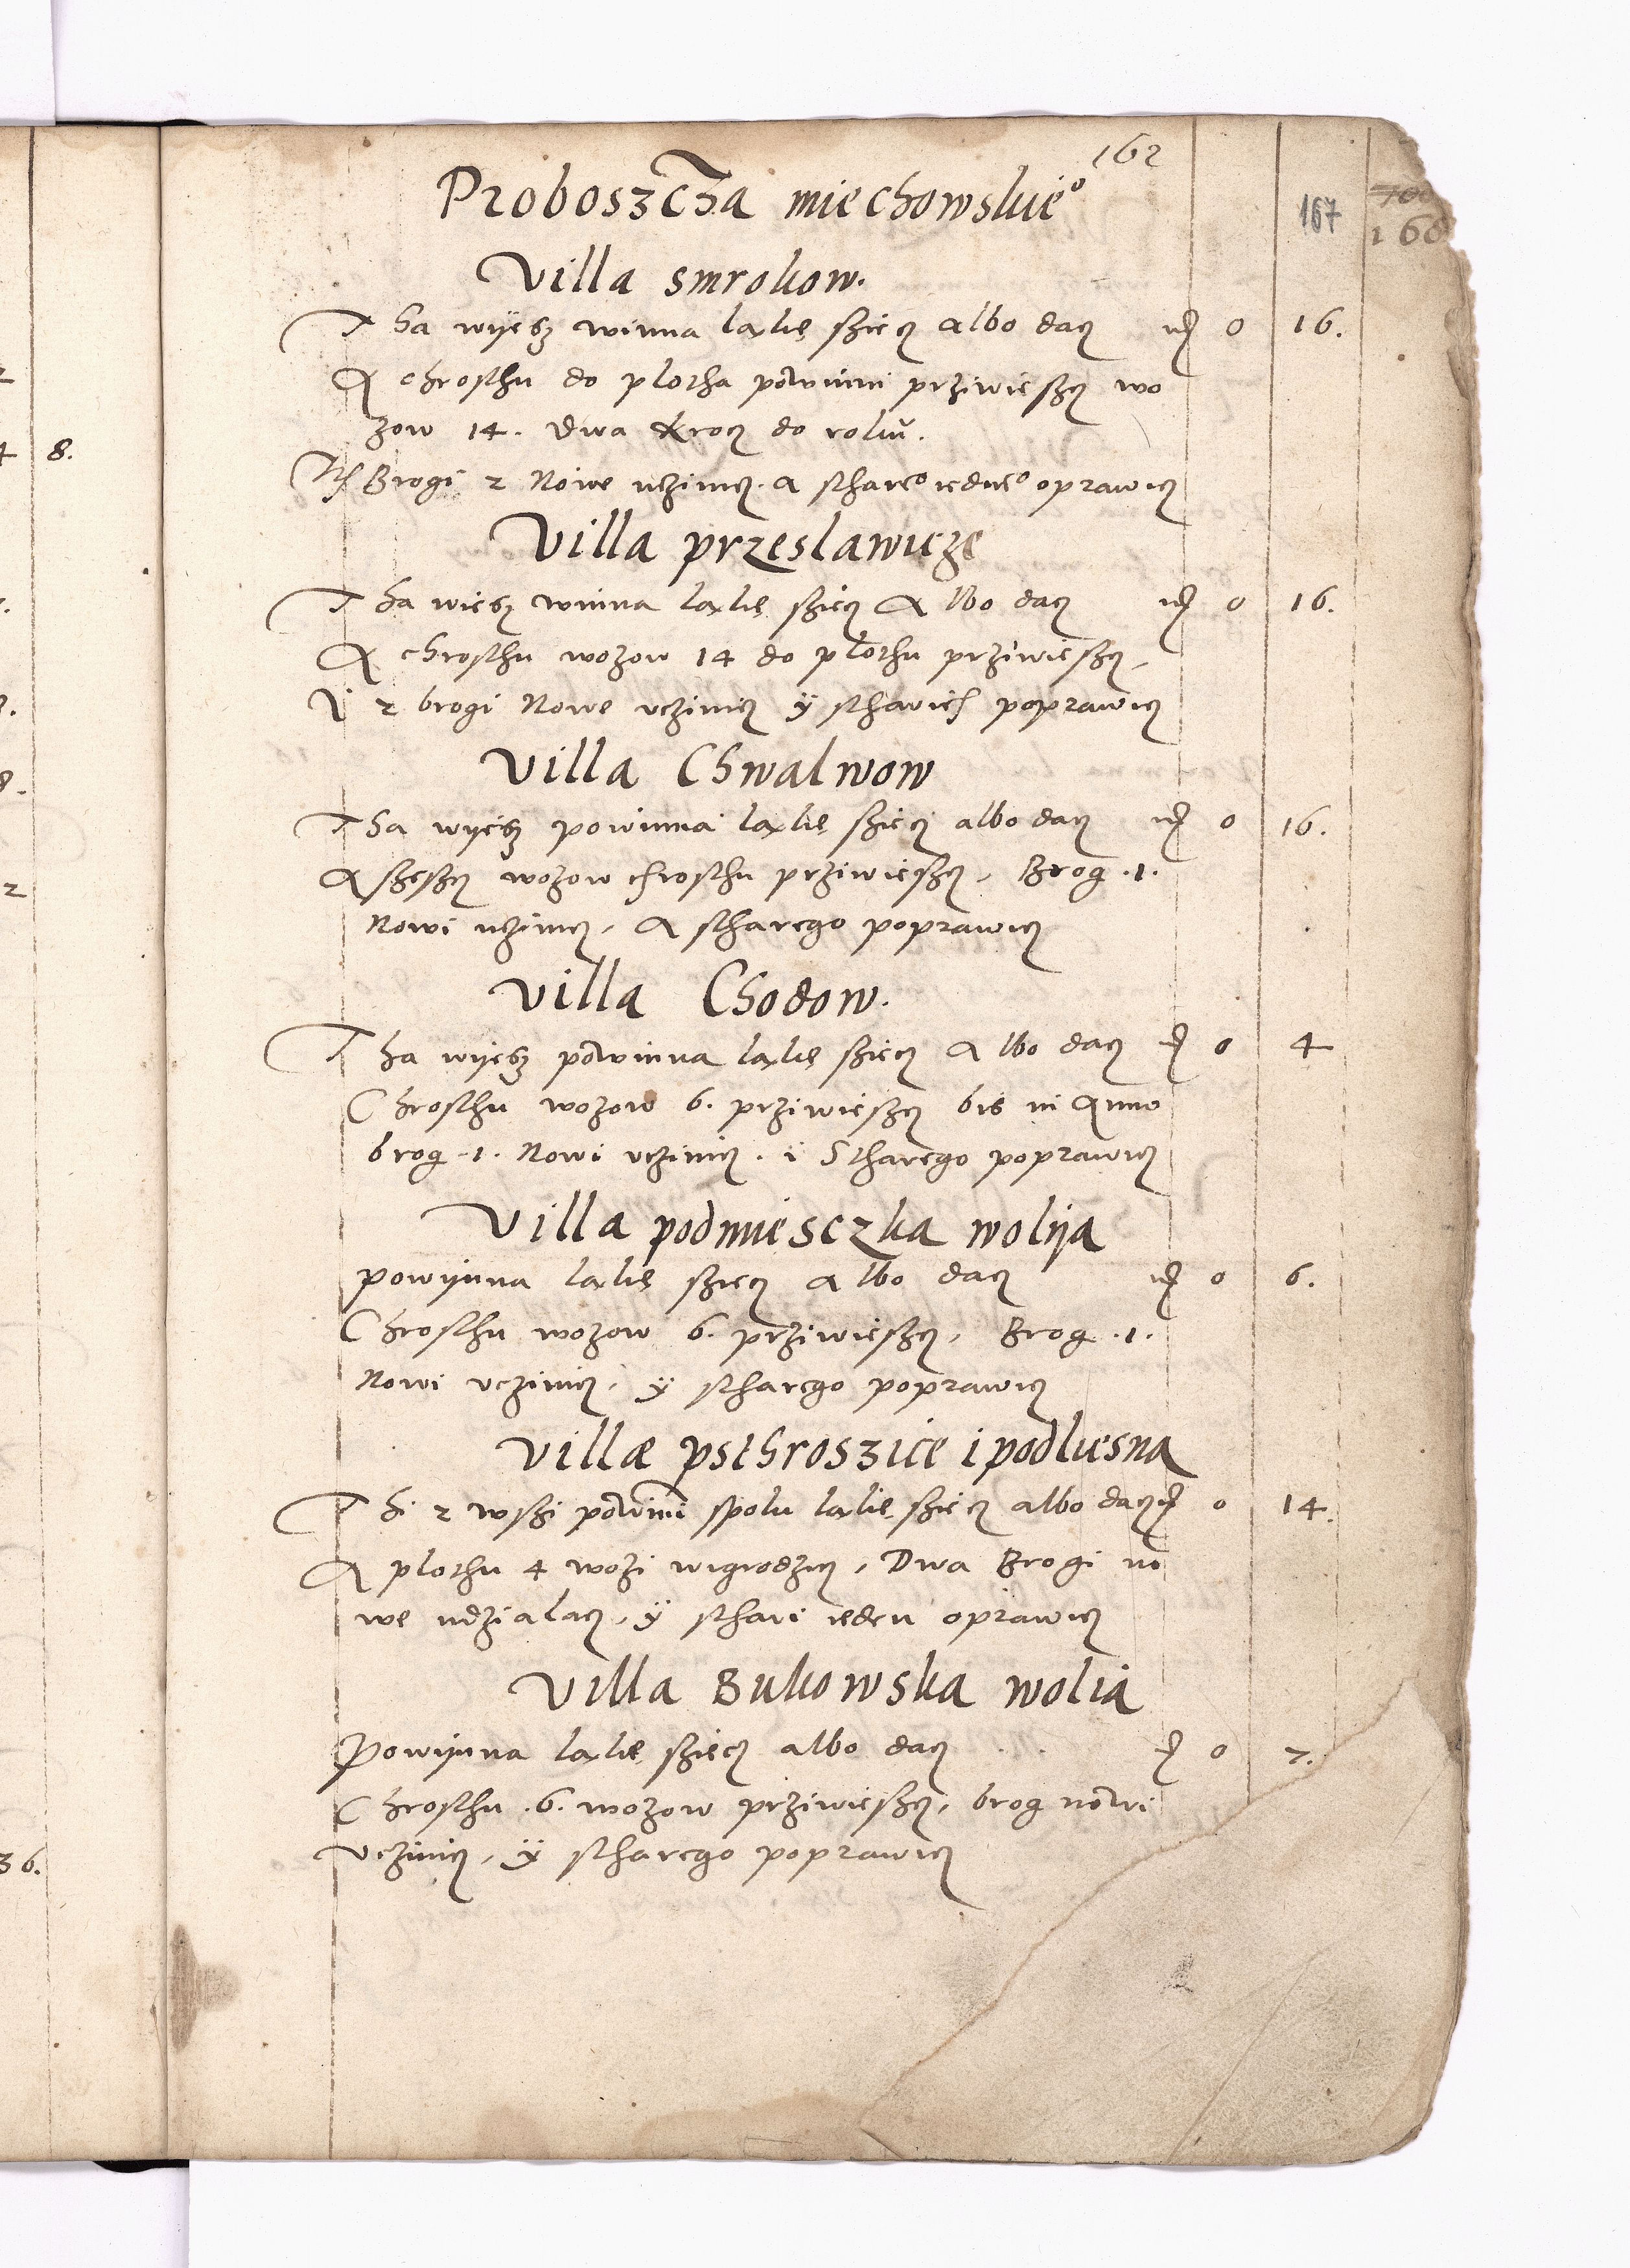 162
Proboszcza miechowskie⁰
167
700
168
Villa smrokow.
Tha wyesz winna laxke sziecz albo dacz 0 16.
A chrosthu do plotha powinni prziwieszcz wo
zow 14. dwa krocz do roku.
Brogi 2 Nowe uczinicz. a stare⁰ iedne⁰ oprawicz
Villa przeslawicze
Tha wiesz winna laxke sziecz Albo dacz 0 16.
A chrosthu wozow 14 do plothu prziwieszcz,
I 2 brogi Nowe uczinicz ÿ stharich poprawicz
Villa Chwalwow
Tha wyesz powinna laxke sziecz albo dacz 0 16.
A szescz wozow chrosthu prziwieszcz, Brog .1.
Nowi uczinicz, A stharego poprawicz
Villa Chodow.
Tha wyesz powinna laxke sziecz Albo dacz 0 4
Chrosthu wozow 6. prziwieszcz bis in Anno
brog .1. Nowi uczinicz . i Stharego poprawicz
Villa podmiesczka wolya
powynna laxke sziecz Albo dacz 0 6.
Chrosthu wozow 6. prziwieszcz, Brog .1.
Nowi uczinicz, ÿ stharego poprawicz
Villæ psthroszice i podliesna
Thi 2 wszi powinni spolu laxke sziecz albo dacz 0 14.
A plothu 4 wozi wigrodzicz, Dwa Brogi no
we udzialacz, ÿ sthari ieden oprawicz
Villa Bukowska wolia
Powynna laxke sziecz albo dacz 0 7.
Chrosthu .6. wozow prziwieszcz, brog nowi
uczinicz, ÿ stharego poprawicz
8.
36.